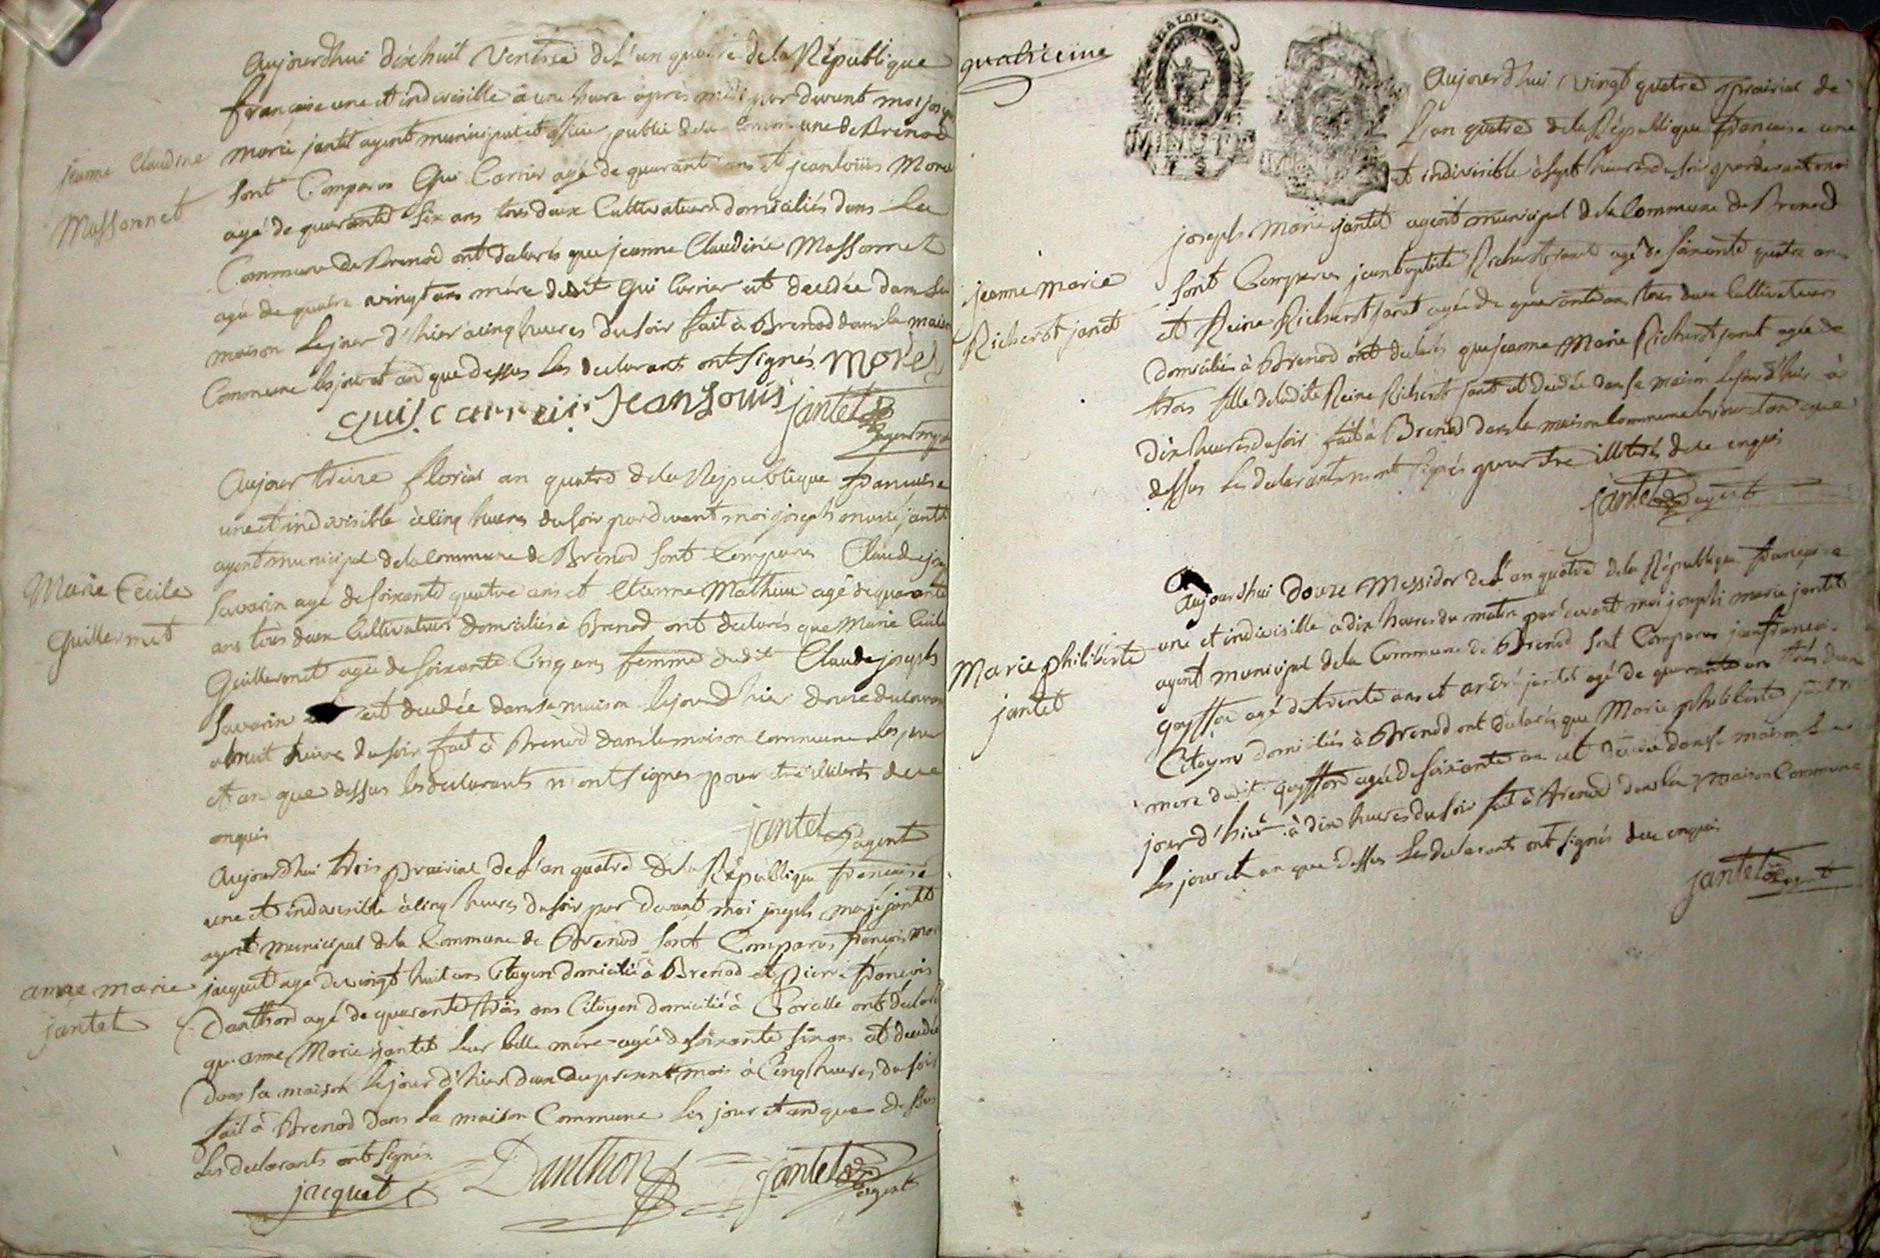 jeanne Claudine
Massonnet
Aujourdhui dixhuit Ventose de l'an quatre de la République
francaise une et indivisible à une heure apres midi par devant moi joseph
marie jantet agent municipal et officier public de la commune de Brenod
sont Comparus Gui Carrier agé de quarante ans et jean louis Morel
agé de quarante six ans tous deux Cultivateurs domiciliés dans la
Commune de Brenod ont declarés que jeanne Claudine Massonnet
agé de quatre vingt ans mére dudit Gui Carrier est decedée dans sa
maison le jour d'hier a cinq heures du soir fait à Brenod dans la maison
Commune les jour et an que dessus les declarants ont signés Morel
gui carrier jean Louis jantet
agent
Marie Cecile
Guillermet
Aujour treize floréal an quatre de la République francaise
une et indivisible à cinq heures du soir par devant moi joseph marie jantet
agent municipal de la commune de Brenod sont Comparus Claude joseph
Savarin agé de soixante quatre ans et Etienne Mathieu agé de quarante
ans tous deux Cultivateurs domiciliés a Brenod ont declarés que Marie Cecile
Guillermet agée de soixante Cinq ans femme dudit Claude joseph
Savarin est decedée dans sa maison le jour d'hier douze du courant
a huit heures du soir fait à Brenod dans la maison commune les jour
et an que dessus les declarants n'ont signés pour etre illiterés de ce
enquis
jantet agent
anne marie
jantet
Aujourdhui trois prairial de l'an quatre de la République francaise
une et indivisible à cinq heures du soir par devant moi joseph marie jantet
agent municipal de la Commune de Brenod sont Comparus francois
jacquet agé de vingt huit ans Citoyen domicilié à Brenod et Pierre francois
Danthon agé de quarante trois ans Citoyen domicilié à Corcelle ont declaré
qu'anne Marie jantet leur belle mére agée de soixante six ans est decedée
dans sa maison le jour d'hier deux du present mois à Cinq heures du soir
fait à Brenod dans la maison Commune les jour et an que dessus
les declarants ont signés
jacquet Danthon jantet
agent
quatrieme
MINUTE
jeanne marie
Richerot janet
Aujourd'hui vingt quatre prairial de
L'an quatre de la République francaise une
et indivisible à sept heures du soir par devant moi
joseph marie jantet agent municipal de la Commune de Brenod
sont Comparus jean baptiste Richerot janet agé de soixante quatre ans
et Reine Richerot janet agée de quarante ans tous deux Cultivateurs
domiciliés à Brenod ont declarés que jeanne Marie Richerot janet agée de
trois fille de ladite Reine Richerot janet est decedée dans sa maison le jour d'hier à
dix heures du soir fait à Brenod dans la maison Commune les jour et an que
dessus les declarants n'ont signés pour etre illiterés de ce enquis
jantet agent
Marie philiberte
jantet
Aujourdhui douze Messidor de l'an quatre de la République francaise
une et indivisible a dix heures du matin par devant moi joseph marie jantet
agent municipal de la Commune de Brenod sont Comparus jean francois
agé de trente ans et andré jantet agé de quarante ans tous deux
Citoyens domiciliés à Brenod ont declarés que Marie philiberte jantet
mere dudit agée de soixante ans est decedée dans sa maison le
jour d'hier à dix heures du soir fait à Brenod dans la maison Commune
les jour et an que dessus les declarants ont signés de ce enquis
jantet agent